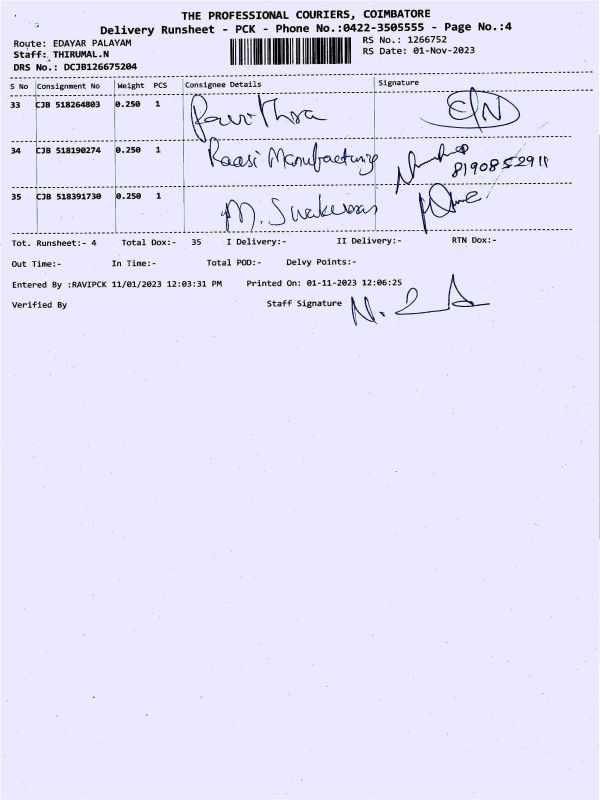 THE PROFESSIONAL COURIERS, COIMBATORE
Delivery Runsheet - PCK - Phone No.:0422-3505555 - Page No.:4
Route: EDAYAR PALAYAM
RS No.: 1266752
Staff: THIRUMAL.N
RS Date: 01-Nov-2023
DRS No.: DCJB126675204
S No Consignment No Weight PCS Consignee Details Signature
33 CJB 518264803 0.250 1 Pavithra
34 CJB 518190274 0.250 1 Raasi Manufacturing 8190852911
35 CJB 518391730 0.250 1 M. Sivakumar
Tot. Runsheet:- 4 Total Dox:- 35 I Delivery:- II Delivery:- RTN Dox:-
Out Time:- In Time:- Total POD:- Delvy Points:-
Entered By :RAVIPCK 11/01/2023 12:03:31 PM Printed On: 01-11-2023 12:06:25
Verified By Staff Signature